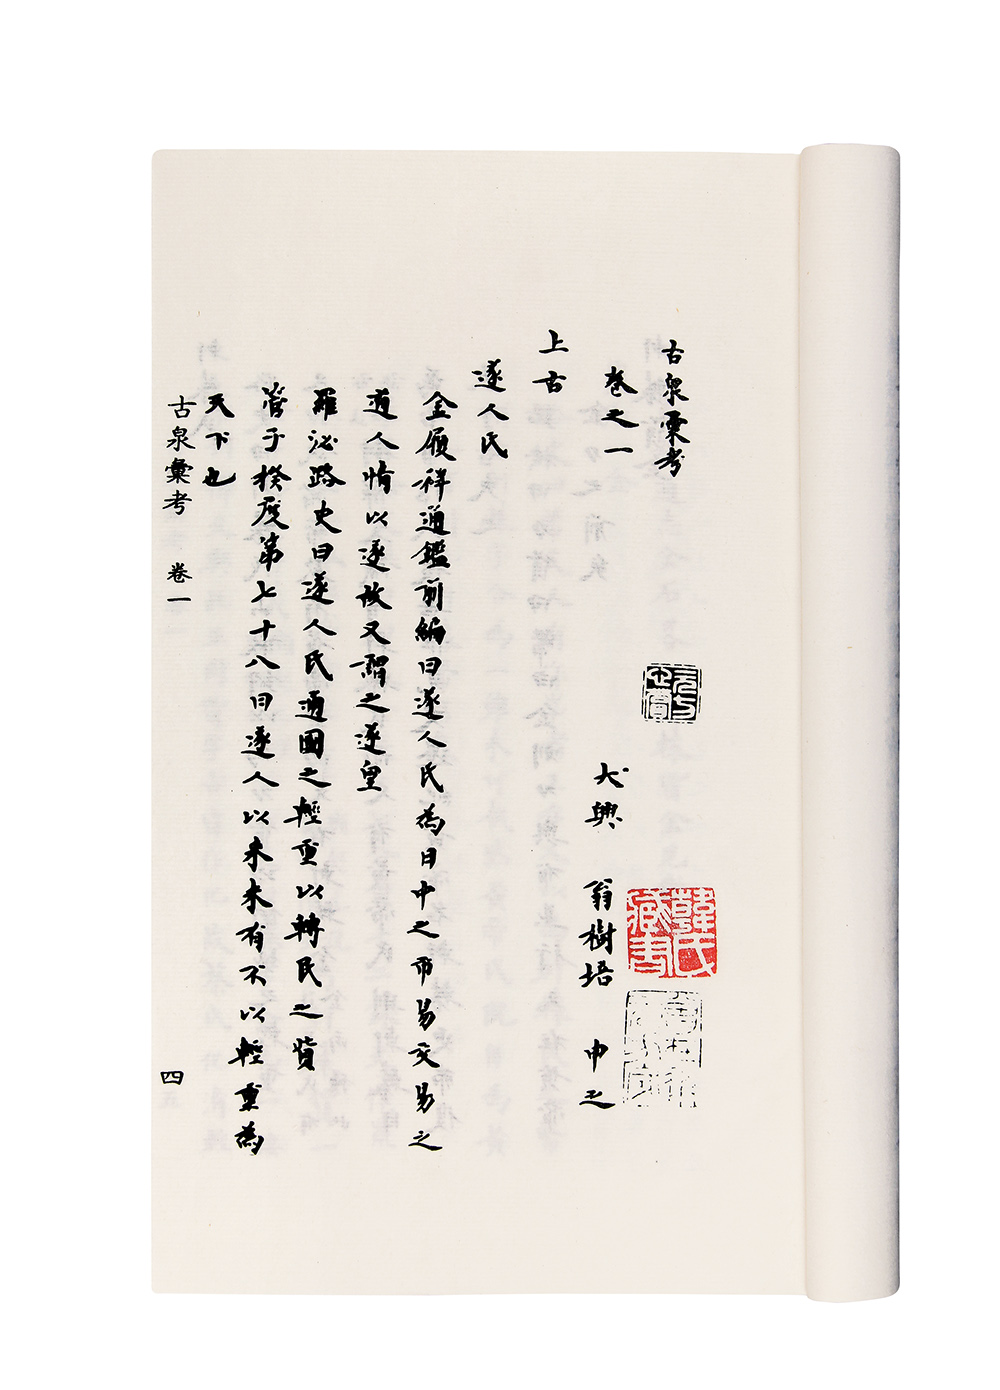 古泉彙考
卷之一
大興 翁樹培 申之
上古
遂人氏
金履祥通鑑前編曰遂人氏為日中之市易交易之
道人情以遂故又謂之遂皇
羅泌路史曰遂人氏通國之輕重以轉民之貨
管子揆度第七十八曰遂人以來未有不以輕重為
天下也
古泉彙考 卷一
四
韓氏藏書